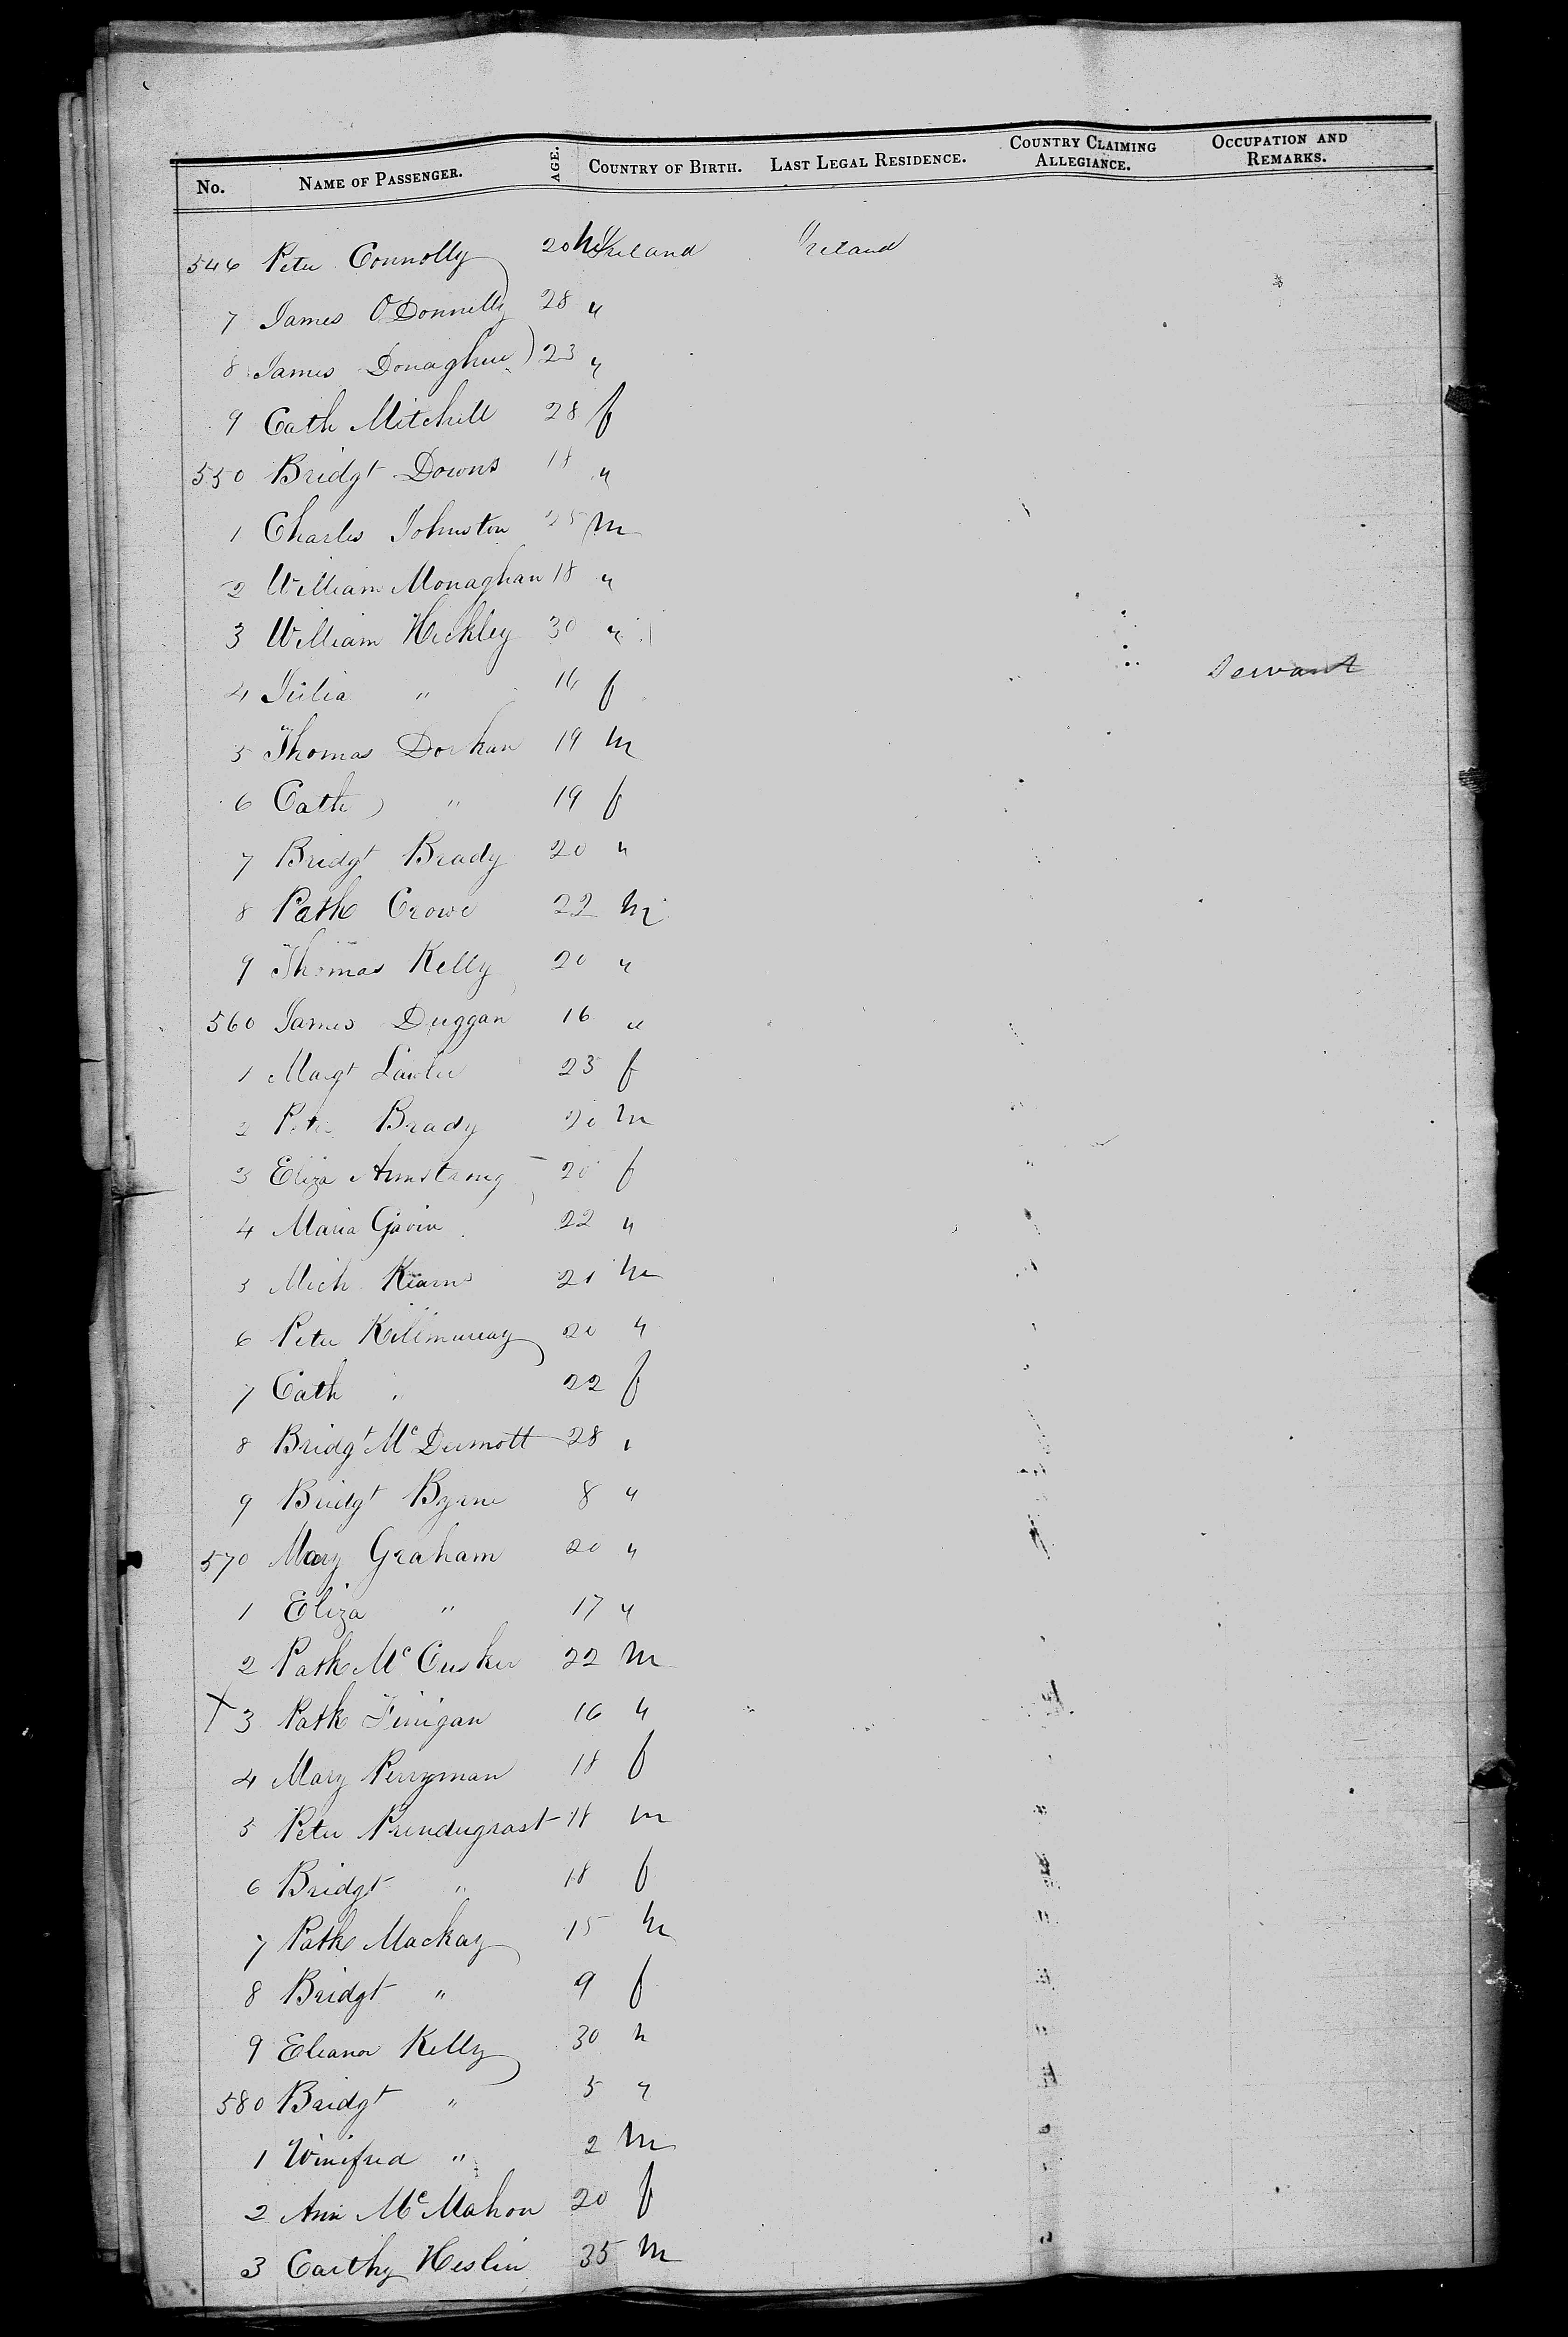 No. NAME OF PASSENGER. AGE. COUNTRY OF BIRTH. LAST LEGAL RESIDENCE. COUNTRY CLAIMING ALLEGIANCE. OCCUPATION AND REMARKS.
546 Peter Connolly 20 m Ireland Ireland
7 James O'Donnelly 28 "
8 James Donaghue 23 "
9 Cath Mitchell 28 f
550 Bridgt Downs 18 "
1 Charles Johnston 25 m
2 William Monaghan 18 "
3 William Hickley 30 "
4 Julia " 16 f Servant
5 Thomas Dorkan 19 m
6 Cath " 19 f
7 Bridgt Brady 20 "
8 Patk Crowe 22 m
9 Thomas Kelly 20 "
560 James Duggan 16 "
1 Margt Lawler 23 f
2 Peter Brady 20 m
3 Eliza Armstrong 20 f
4 Maria Gavin 22 "
5 Mich Kearns 21 m
6 Peter Kilimurray 20 "
7 Cath " 22 f
8 Bridgt McDermott 28 "
9 Bridgt Byrne 8 "
570 Mary Graham 20 "
1 Eliza " 17 "
2 Patk McCusker 22 m
X 3 Patk Finigan 16 "
4 Mary Perryman 18 f
5 Peter Prendergrast 18 m
6 Bridgt " 18 f
7 Patk Mackay 15 m
8 Bridgt " 9 f
9 Eleanor Kelly 30 "
580 Bridgt " 5 "
1 Winifred " 2 m
2 Ann McMahon 20 f
3 Carthy Heslin 35 m